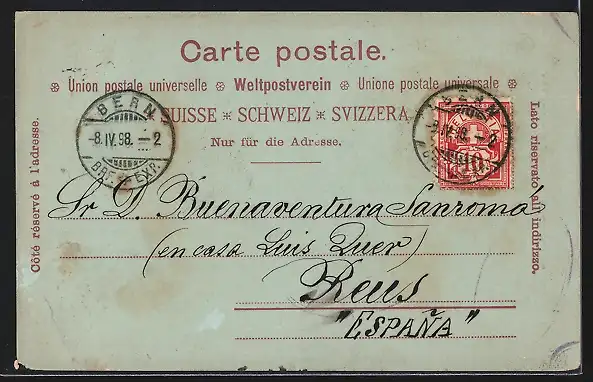 Carte postale.
Union postale universelle ❋ Weltpostverein ❋ Unione postale universale
SUISSE ❋ SCHWEIZ ❋ SVIZZERA
Nur für die Adresse.
Côté réservé à l'adresse.
Lato riservato all' indirizzo.
BERN
8.IV.98.–2
BRF. EXP.
BERN
10
Sr D. Buenaventura Sanromá
(en casa Luis Quer)
Reus
"ESPAÑA"